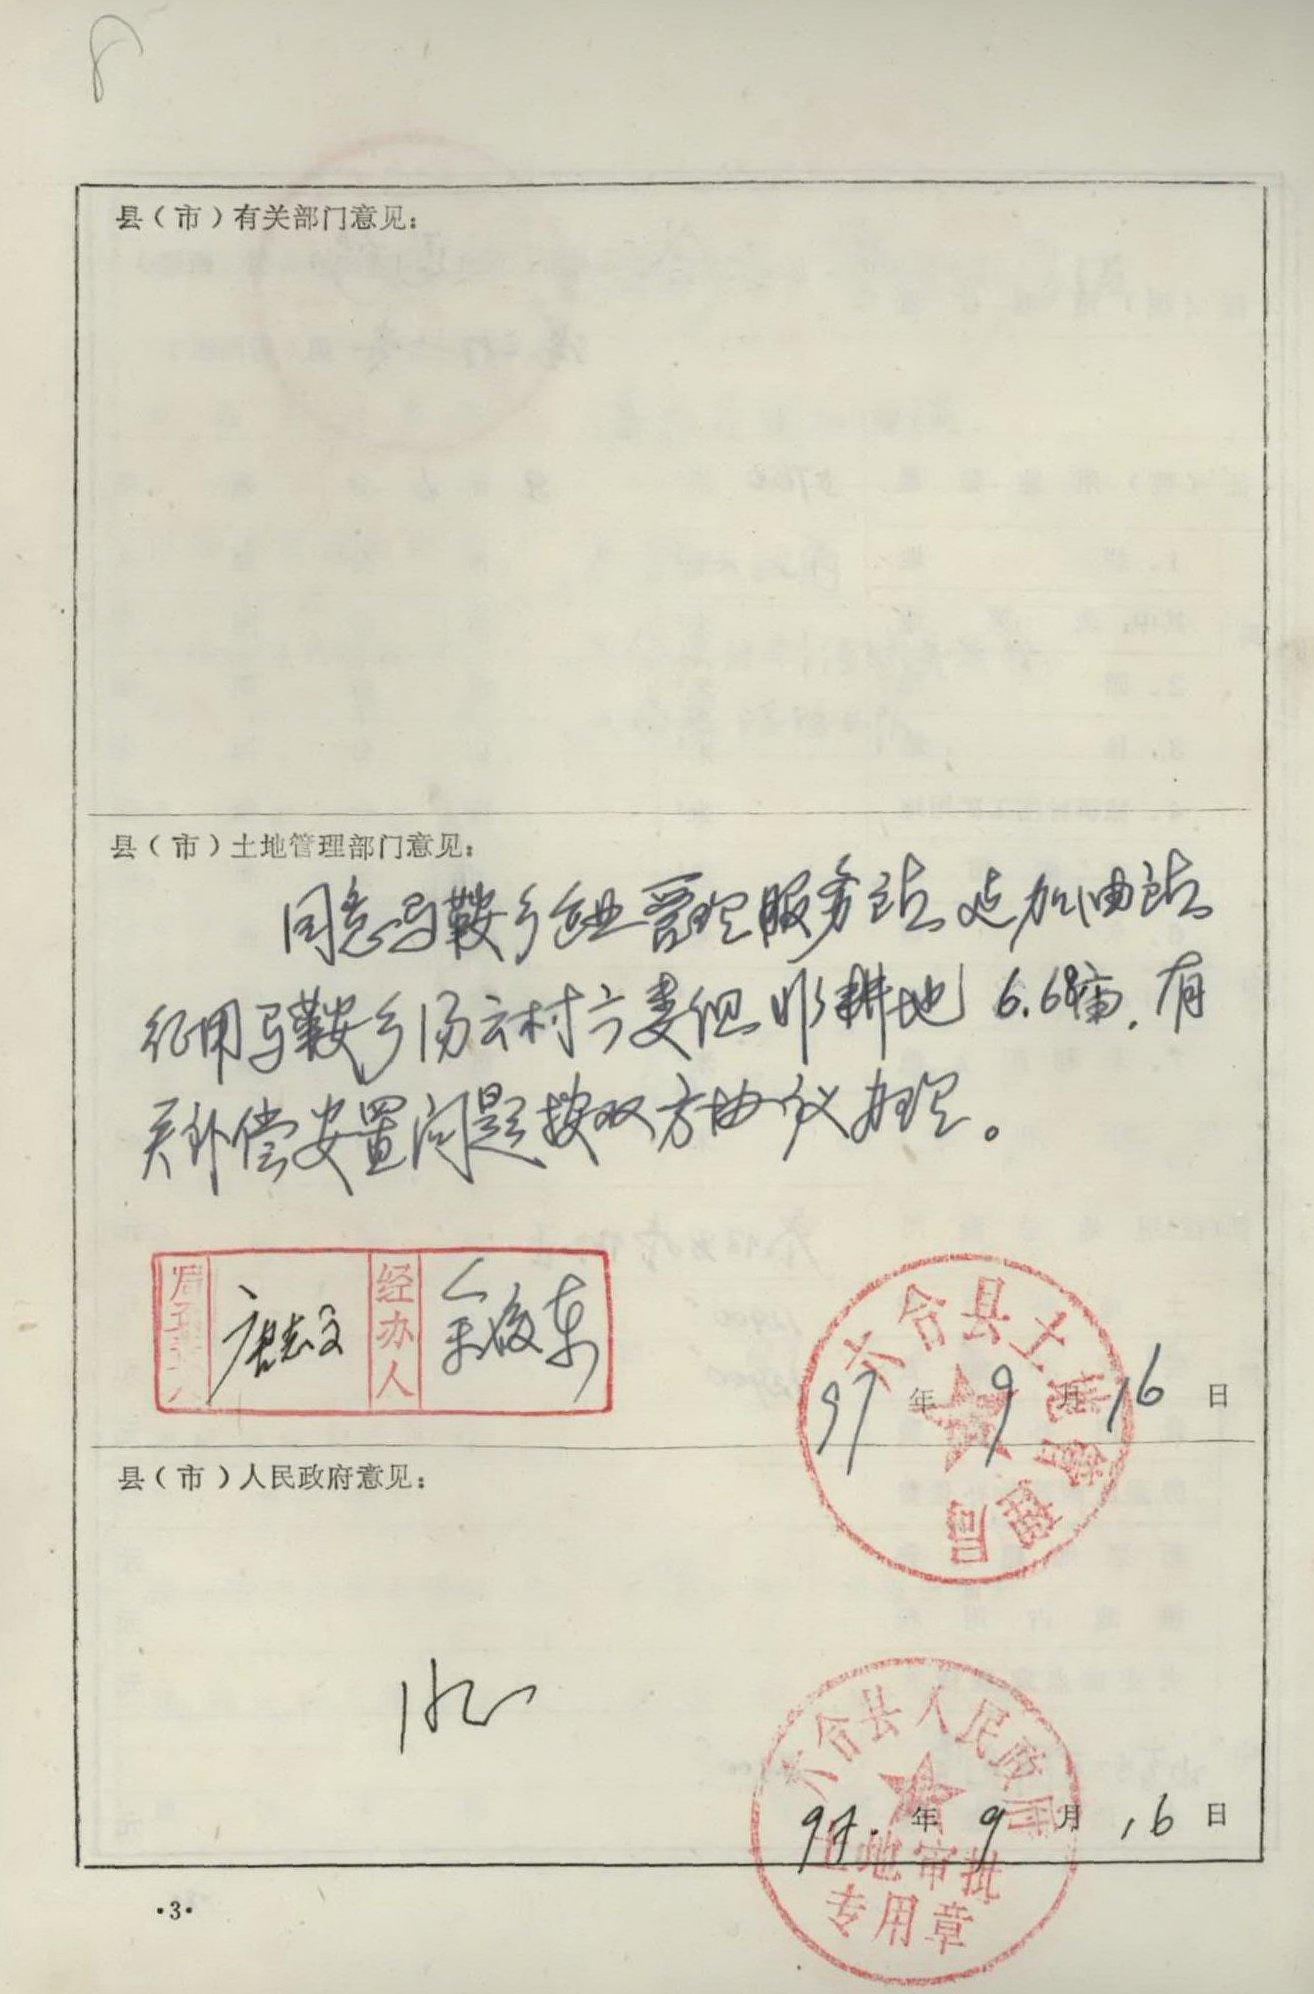 县（市）有关部门意见：
县（市）土地管理部门意见：
同意马鞍乡企业管理服务站建加油站
征用马鞍乡汤云村六娄组非耕地6.68亩，有
关补偿安置问题按双方协议办理。
唐志文
经办人
六合县土地管理局
97年9月16日
县（市）人民政府意见：
六合县人民政府
土地审批
专用章
97.年9月16日
·3·